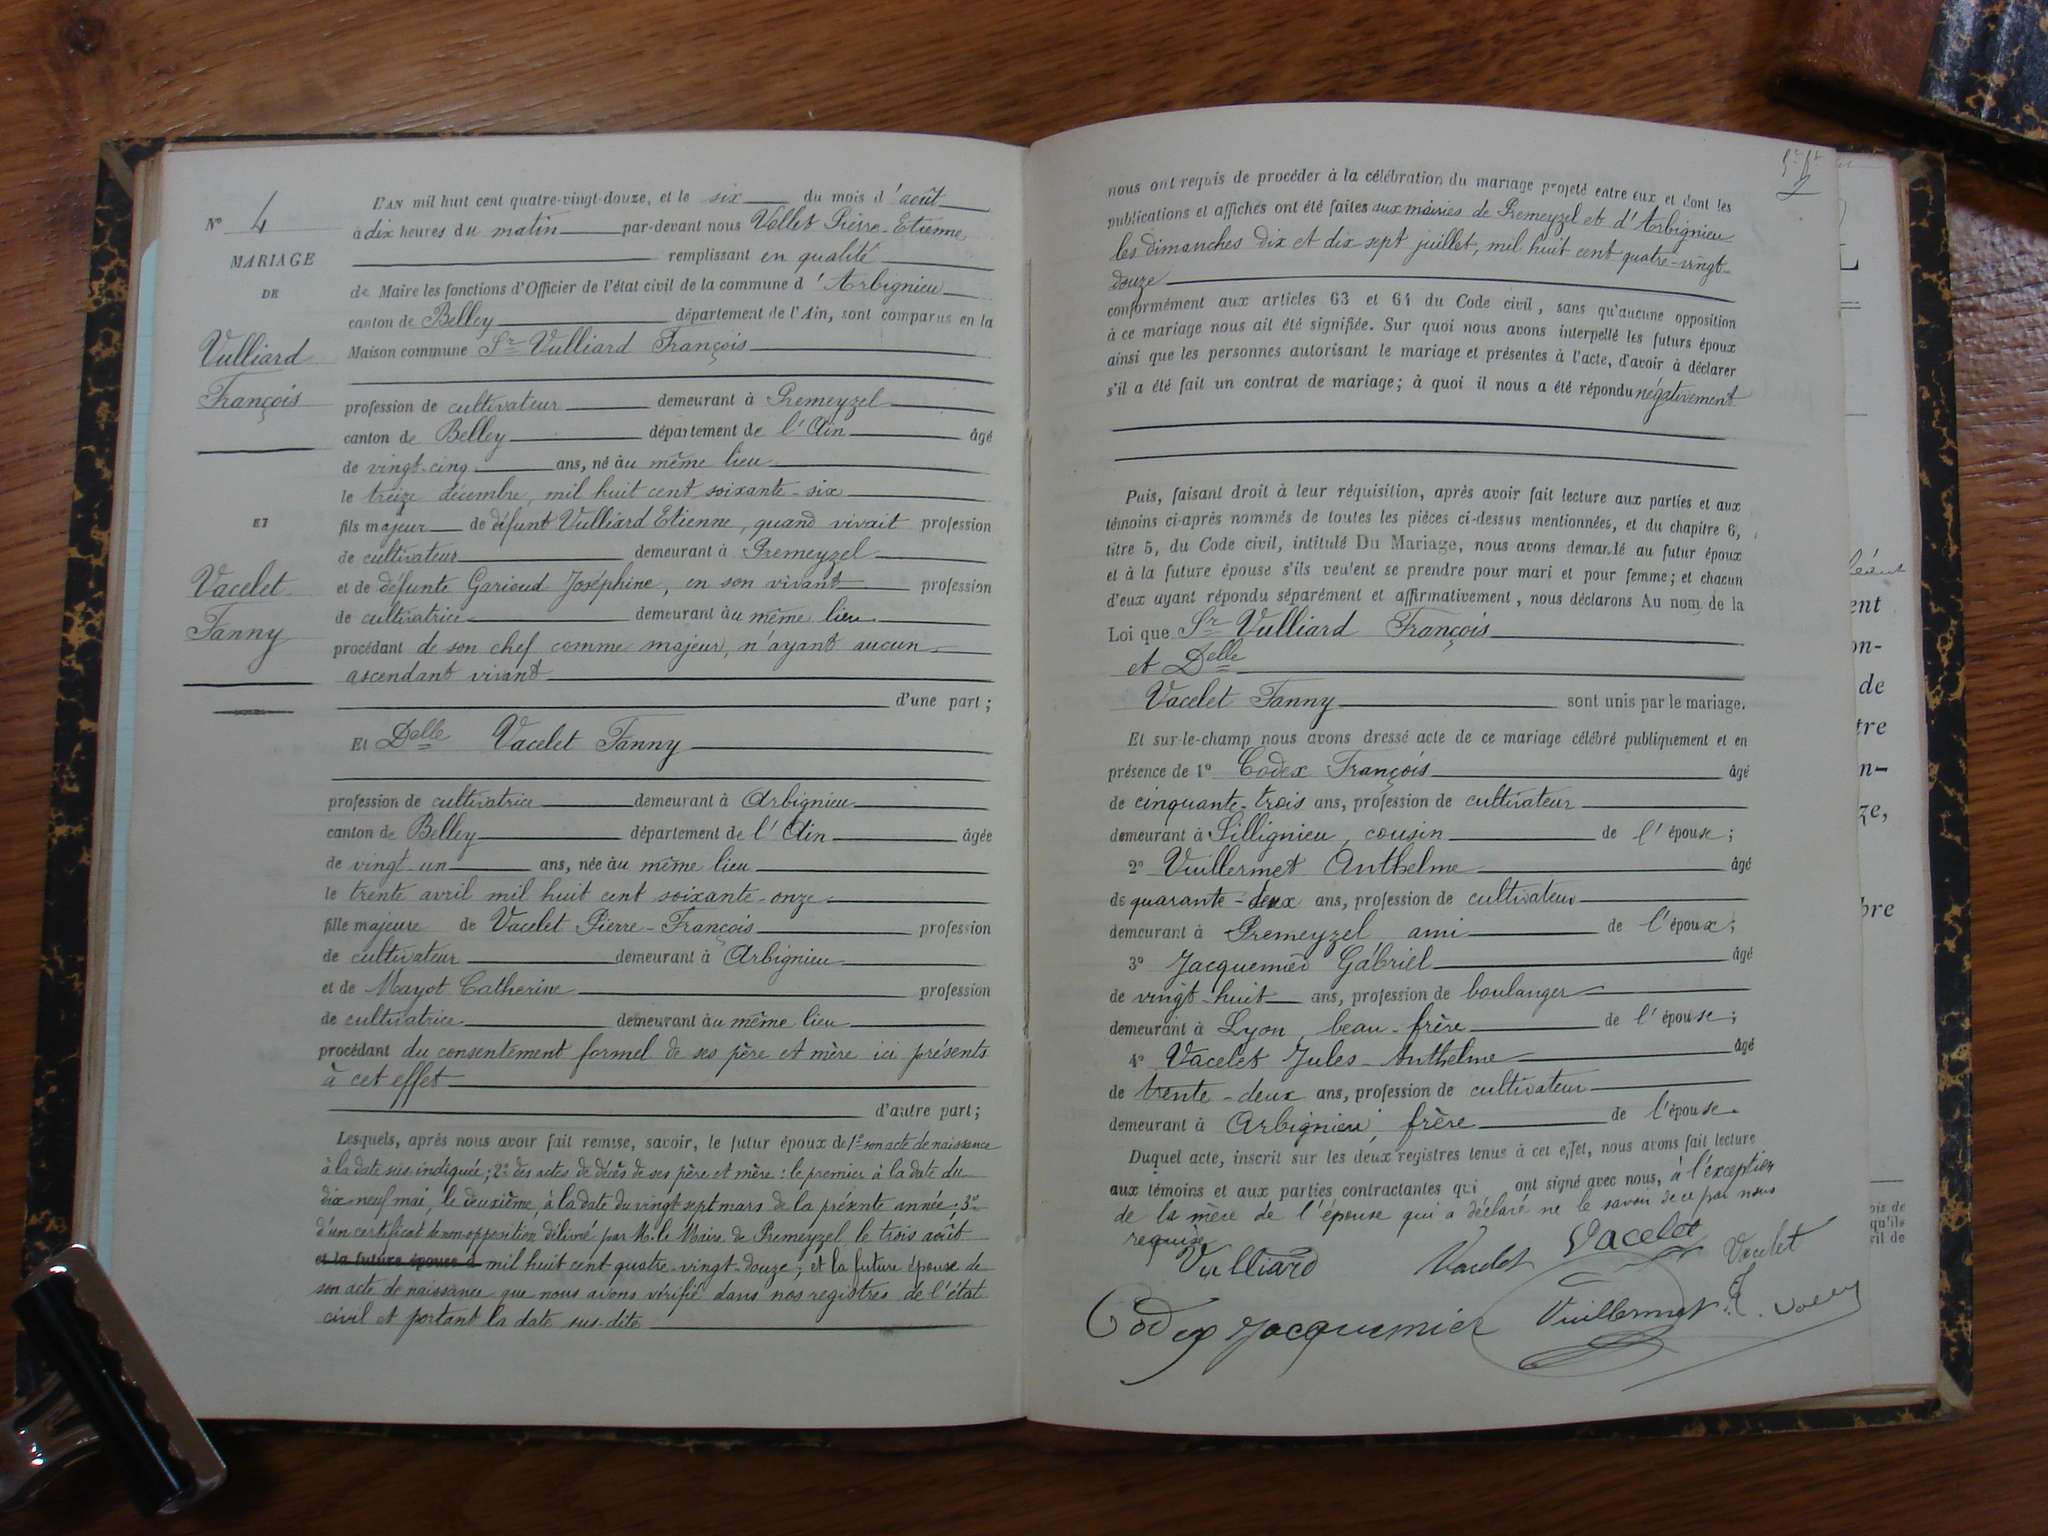 N° 4
MARIAGE
DE
Vulliard
François
ET
Vacelet
Fanny
L'AN mil huit cent quatre-vingt-douze, et le six du mois d'août
à dix heures du matin par-devant nous Vollet Pierre-Etienne
remplissant en qualité
de Maire les fonctions d'Officier de l'état civil de la commune d'Arbignieu
canton de Belley département de l'Ain, sont comparus en la
Maison commune Sr Vulliard François
profession de cultivateur demeurant à Premeyzel
canton de Belley département de l'Ain âgé
de vingt-cinq ans, né àu même lieu
le treize décembre, mil huit cent soixante-six
fils majeur de défunt Vulliard Etienne, quand vivait profession
de cultivateur demeurant à Premeyzel
et de défunte Garioud Joséphine, en son vivant profession
de cultivatrice demeurant àu même lieu
procédant de son chef comme majeur, n'ayant aucun
ascendant vivant
d'une part ;
Et Delle Vacelet Fanny
profession de cultivatrice demeurant à Arbignieu
canton de Belley département de l'Ain âgée
de vingt-un ans, née àu même lieu
le trente avril mil huit cent soixante-onze
fille majeure de Vacelet Pierre-François profession
de cultivateur demeurant à Arbignieu
et de Mayot Catherine profession
de cultivatrice demeurant àu même lieu
procédant du consentement formel de ses père et mère ici présents
à cet effet
d'autre part ;
Lesquels, après nous avoir fait remise, savoir, le futur époux de 1° son acte de naissance
à la date sus-indiquée ; 2° des actes de décès de ses père et mère : le premier à la date du
dix neuf mai, le deuxième, à la date du vingt sept mars de la présente année ; 3°
d'un certificat de non opposition délivré par M. le Maire de Premeyzel le trois août
et la future épouse d mil huit cent quatre-vingt-douze ; et la future épouse de
son acte de naissance que nous avons vérifié dans nos registres de l'état
civil et portant la date sus-dite
2
nous ont requis de procéder à la célébration du mariage projeté entre eux et dont les
publications et affiches ont été faites aux mairies de Premeyzel et d'Arbignieu
les dimanches dix et dix sept juillet, mil huit cent quatre-vingt-
douze
conformément aux articles 63 et 64 du Code civil, sans qu'aucune opposition
à ce mariage nous ait été signifiée. Sur quoi nous avons interpellé les futurs époux
ainsi que les personnes autorisant le mariage et présentes à l'acte, d'avoir à déclarer
s'il a été fait un contrat de mariage ; à quoi il nous a été répondu négativement
Puis, faisant droit à leur réquisition, après avoir fait lecture aux parties et aux
témoins ci-après nommés de toutes les pièces ci-dessus mentionnées, et du chapitre 6,
titre 5, du Code civil, intitulé Du Mariage, nous avons demandé au futur époux
et à la future épouse s'ils veulent se prendre pour mari et pour femme ; et chacun
d'eux ayant répondu séparément et affirmativement, nous déclarons Au nom de la
Loi que Sr Vulliard François
et Delle
Vacelet Fanny sont unis par le mariage.
Et sur-le-champ nous avons dressé acte de ce mariage célébré publiquement et en
présence de 1° Codex François âgé
de cinquante-trois ans, profession de cultivateur
demeurant à Sillignieu, cousin de l'épouse ;
2° Vuillermet Anthelme âgé
de quarante-deux ans, profession de cultivateur
demeurant à Premeyzel ami de l'époux ;
3° Jacquemier Gabriel âgé
de vingt-huit ans, profession de boulanger
demeurant à Lyon, beau-frère de l'épouse ;
4° Vacelet Jules-Anthelme âgé
de trente-deux ans, profession de cultivateur
demeurant à Arbignieu, frère de l'épouse.
Duquel acte, inscrit sur les deux registres tenus à cet effet, nous avons fait lecture
aux témoins et aux parties contractantes qui ont signé avec nous, à l'exception
de la mère de l'épouse qui a déclaré ne le savoir de ce par nous
requise
Vulliard Vacelet Vacelet Vacelet
Codex Jacquemier Vuillermet
ent
on-
de
tre
n-
ze,
bre
ois de
qu'ils